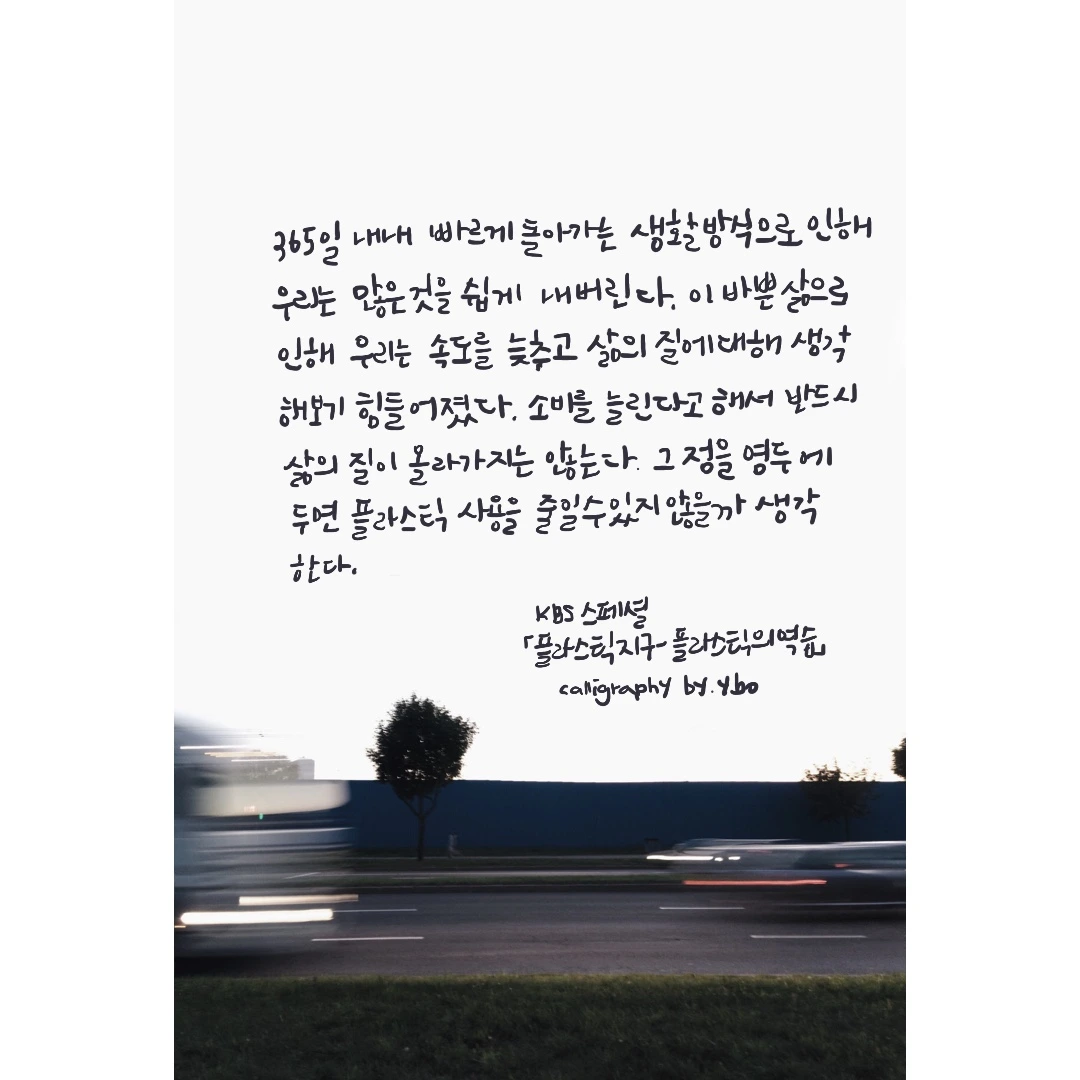 365일 내내 빠르게 돌아가는 생활방식으로 인해
우리는 많은것을 쉽게 내버린다. 이 바쁜삶으로
인해 우리는 속도를 늦추고 삶의 질에대해 생각
해보기 힘들어졌다. 소비를 늘린다고 해서 반드시
삶의 질이 올라가지는 않는다. 그 점을 염두에
두면 플라스틱 사용을 줄일수있지않을까 생각
한다.
KBS 스페셜
「플라스틱지구-플라스틱의역습」
calligraphy by.ybo